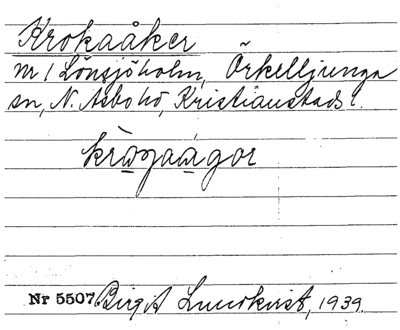 Krokaåker
nr 1 Lönsjöholm, Örkelljunga
sn, N. Åsbo hd, Kristianstads l.
krògaågor
Nr 5507 Birgit Lundkvist, 1939.